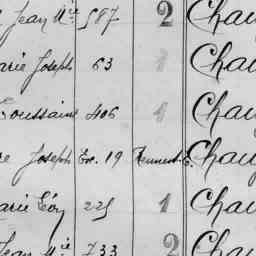 Jean Mie 587 2 Chau
arie Joseph 63 1 Chau
Toussaint 406 1 Chau
re Joseph Ex. 19 Chau
arie 225 1 Chau
Jean Mie 733 2 Chau